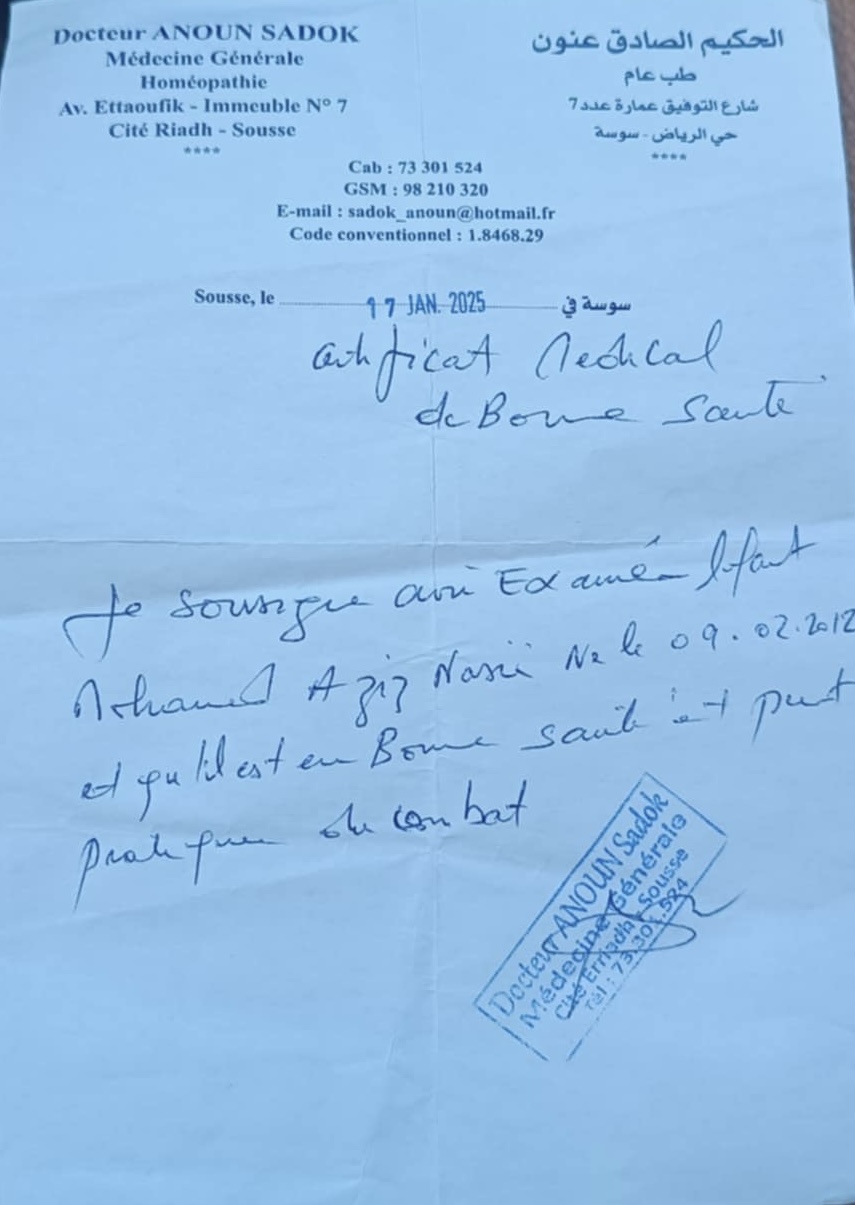 Docteur ANOUN SADOK
Médecine Générale
Homéopathie
Av. Ettaoufik - Immeuble N° 7
Cité Riadh - Sousse
****
الحكيم الصادق عنون
طب عام
شارع التوفيق عمارة عدد 7
حي الرياض - سوسة
****
Cab : 73 301 524
GSM : 98 210 320
E-mail : sadok_anoun@hotmail.fr
Code conventionnel : 1.8468.29
Sousse, le 17 JAN. 2025 سوسة في
Certificat Medical
de Bonne Santé
Je soussigne avoir Examiné l'enfant
Mohamed Aziz Né le 09.02.2012
et qu'il est en Bonne santé et peut
pratiquer du combat
Docteur ANOUN Sadok
Médecine Générale
Cité Erriadh - Sousse
Tél : 73.301.524